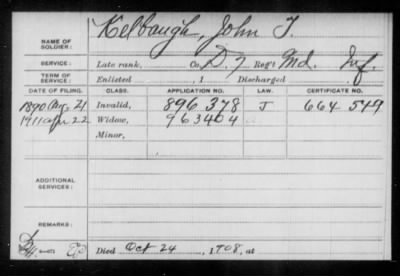 NAME OF SOLDIER: Kelbaugh, John T.
SERVICE: Late rank, Co. D, 7 Reg't Md. Inf.
TERM OF SERVICE: Enlisted , 1 Discharged , 1
DATE OF FILING. CLASS. APPLICATION NO. LAW. CERTIFICATE NO.
1890 Aug. 21 Invalid, 896 378 J 664 549
1911 Apr 22 Widow, 963404
Minor,
ADDITIONAL SERVICES:
REMARKS:
Died Oct 24, 1908, at